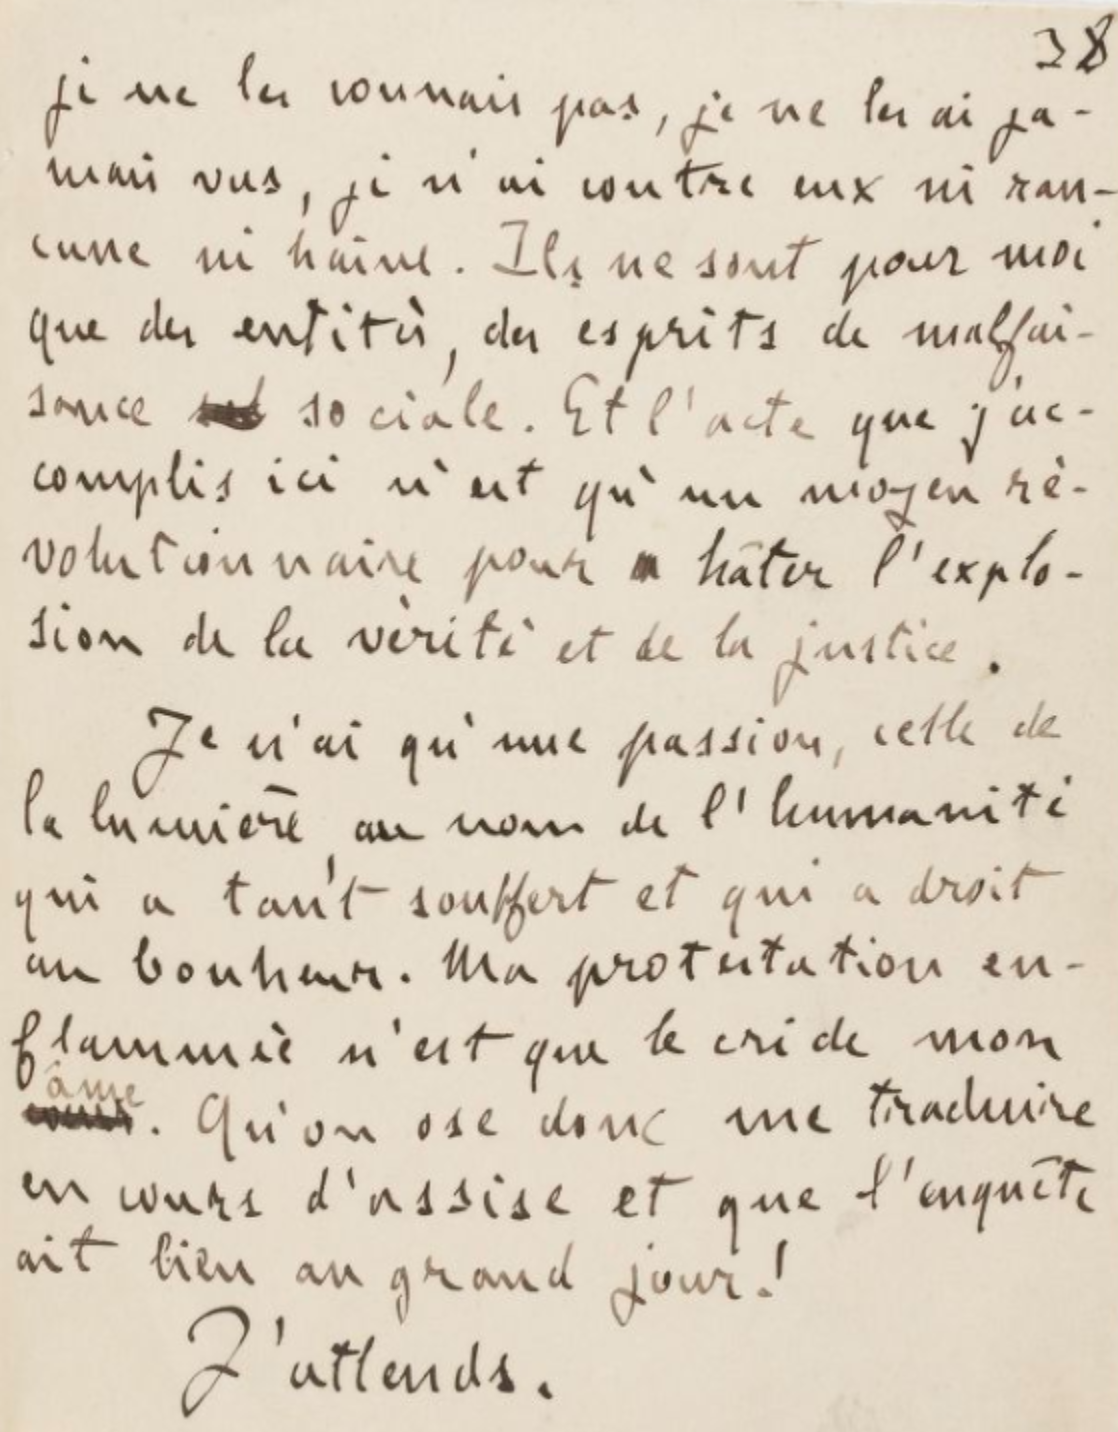 38
je ne les connais pas, je ne les ai ja-
mais vus, je n'ai contre eux ni ran-
cune ni haine. Ils ne sont pour moi
que des entités, des esprits de malfai-
sance sociale. Et l'acte que j'ac-
complis ici n'est qu'un moyen ré-
volutionnaire pour hâter l'explo-
sion de la vérité et de la justice.
Je n'ai qu'une passion, celle de
la lumière, au nom de l'humanité
qui a tant souffert et qui a droit
au bonheur. Ma protestation en-
flammée n'est que le cri de mon
âme
. Qu'on ose donc me traduire
en cours d'assise et que l'enquête
ait lieu au grand jour!
J'attends.